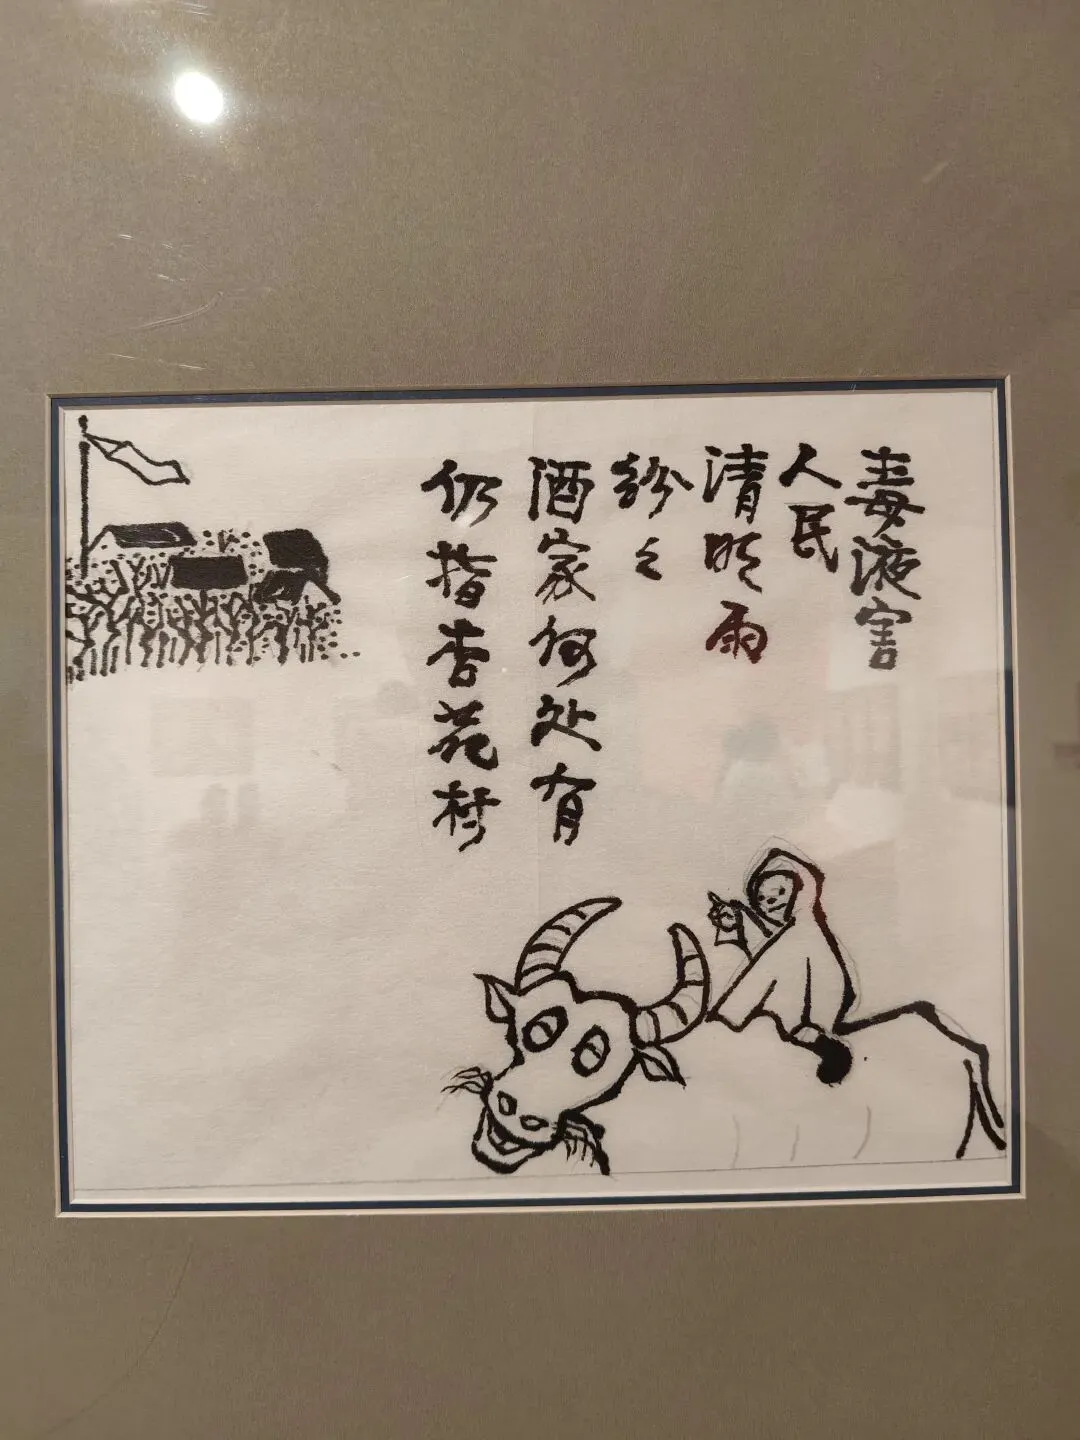 毒液害
人民
清明雨
紛之
酒家何处有
仍指杏花村